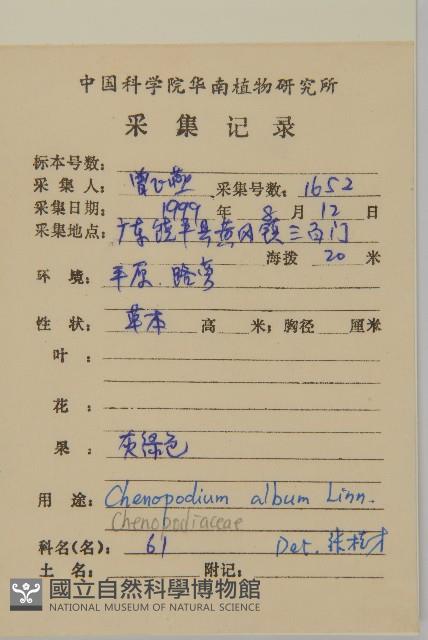 中国科学院华南植物研究所
采集记录
标本号数:
采集人: 曾飞燕 采集号数: 1652
采集日期: 1999 年 8 月 12 日
采集地点: 广东饶平县黄冈镇三百门
海拨 20 米
环境: 平原.路旁
性状: 草本 高 米; 胸径 厘米
叶:
花:
果: 灰绿色
用途: Chenopodium album Linn.
Chenopodiaceae
科名(名): 61 Det. 张桂才
土名: 附记:
國立自然科學博物館
NATIONAL MUSEUM OF NATURAL SCIENCE